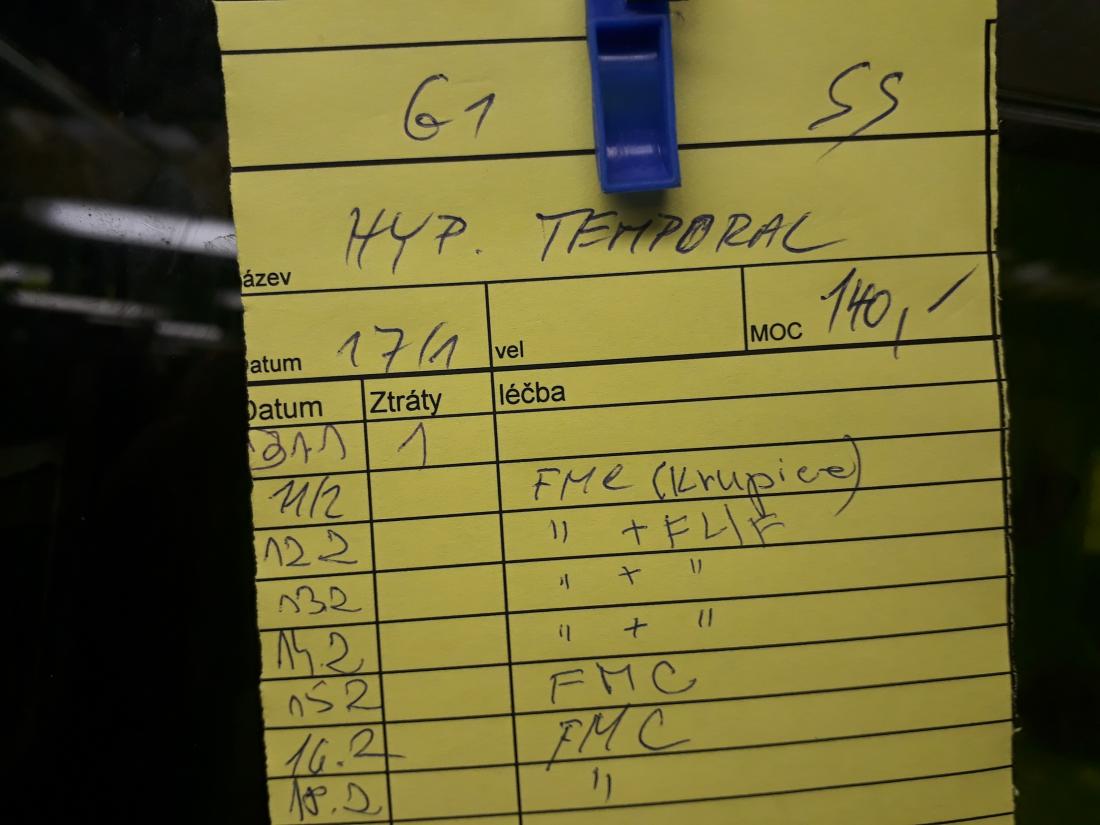 G1 SS
HYP. TEMPORAL
ázev
atum 17/1 vel MOC 140,-
Datum Ztráty léčba
1
11/2 FMC (Krupice)
12 2 " + FLIF
13 2 " + "
14.2 " + "
15 2 FMC
16.2 FMC
18.2 "